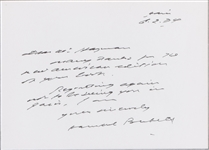 Paris
Dear Mr. Hayman
many thanks for the
new American edition
of your book.
Regretting again
not being you in
Paris, I am
yours sincerely
Samuel Beckett